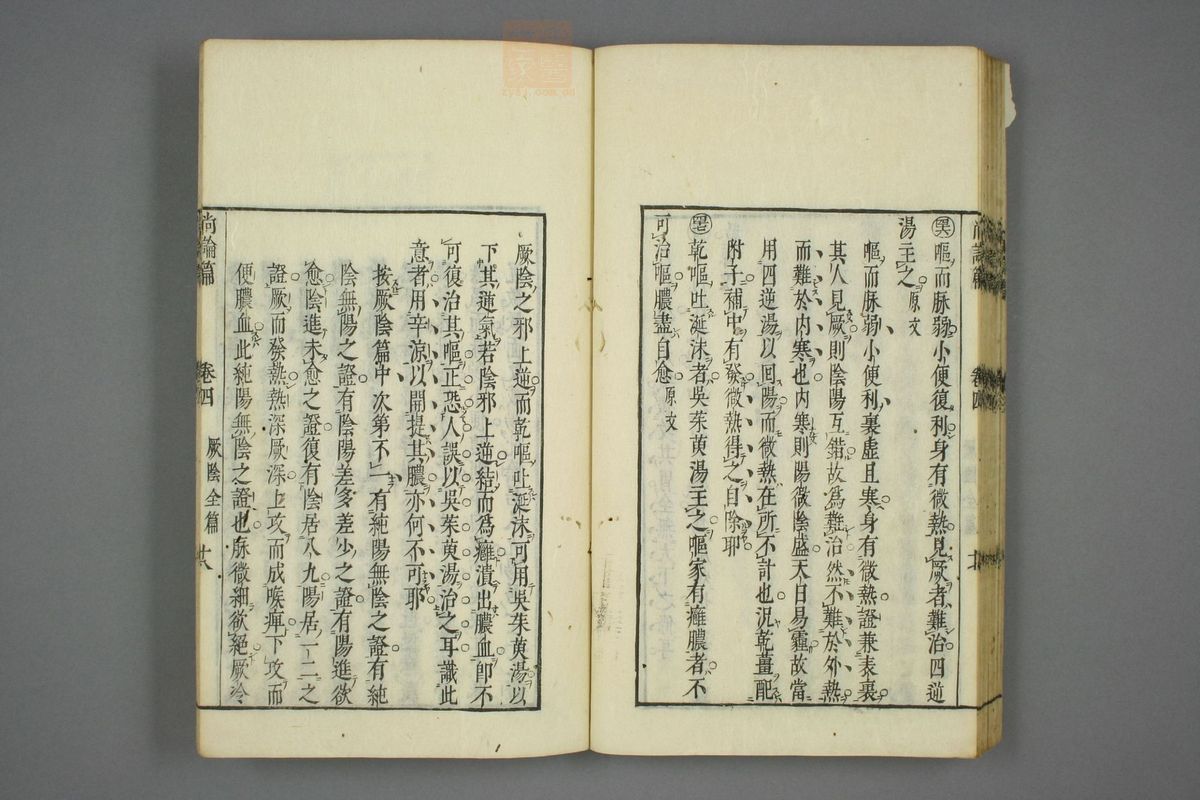 嘔而脉弱小便復利身有微熱見厥者難治四逆
湯主之原文
嘔而脉弱小便利裏虛且寒身有微熱證兼表裏
其人見厥則陰陽互錯故爲難治然不難於外熱
而難於内寒也内寒則陽微陰盛天日易霾故當
用四逆湯以囘陽而微熱在所不計也況乾薑配
附子補中有發微熱得之自除耶
乾嘔吐涎沫者吳茱萸湯主之嘔家有癰膿者不
可治嘔膿盡自愈原文
厥陰之邪上逆而乾嘔吐涎沫可用吳茱萸湯以
下其逆氣若陰邪上逆結而爲癰潰出膿血卽不
可復治其嘔正恐人誤以吳茱萸湯治之耳識此
意者用辛涼以開提其膿亦何不可耶
按厥陰篇中次第不一有純陽無陰之證有純
陰無陽之證有陰陽差多差少之證有陽進欲
愈陰進未愈之證復有陰居八九陽居一二之
證厥而發熱熱深厥深上攻而成喉痺下攻而
便膿血此純陽無陰之證也脉微細欲絕厥冷
尚論篇
卷四
厥陰全篇
廿八